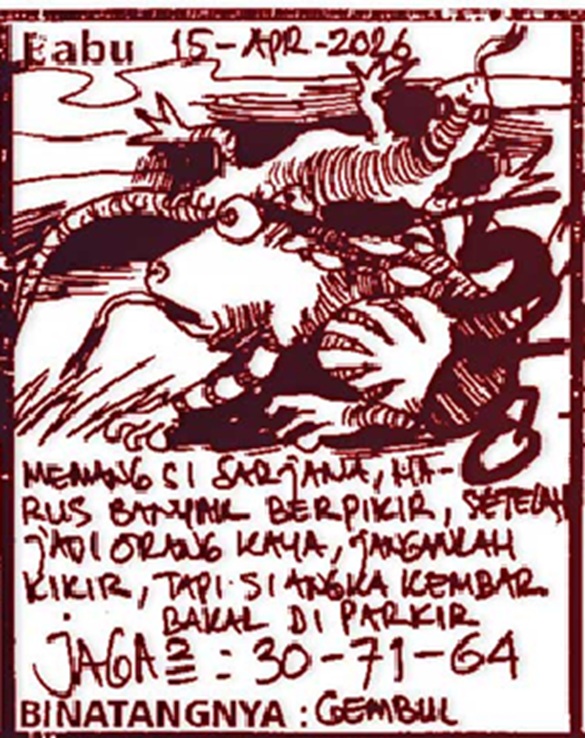 Rabu 15-APR-2026
MEMANG SI SARJANA, HA-
RUS BANYAK BERPIKIR, SETELAH
JADI ORANG KAYA, JANGANLAH
KIKIR, TAPI SI ANGKA KEMBAR
BAKAL DI PARKIR
JAGA2 = : 30-71-64
BINATANGNYA : GEMBUL